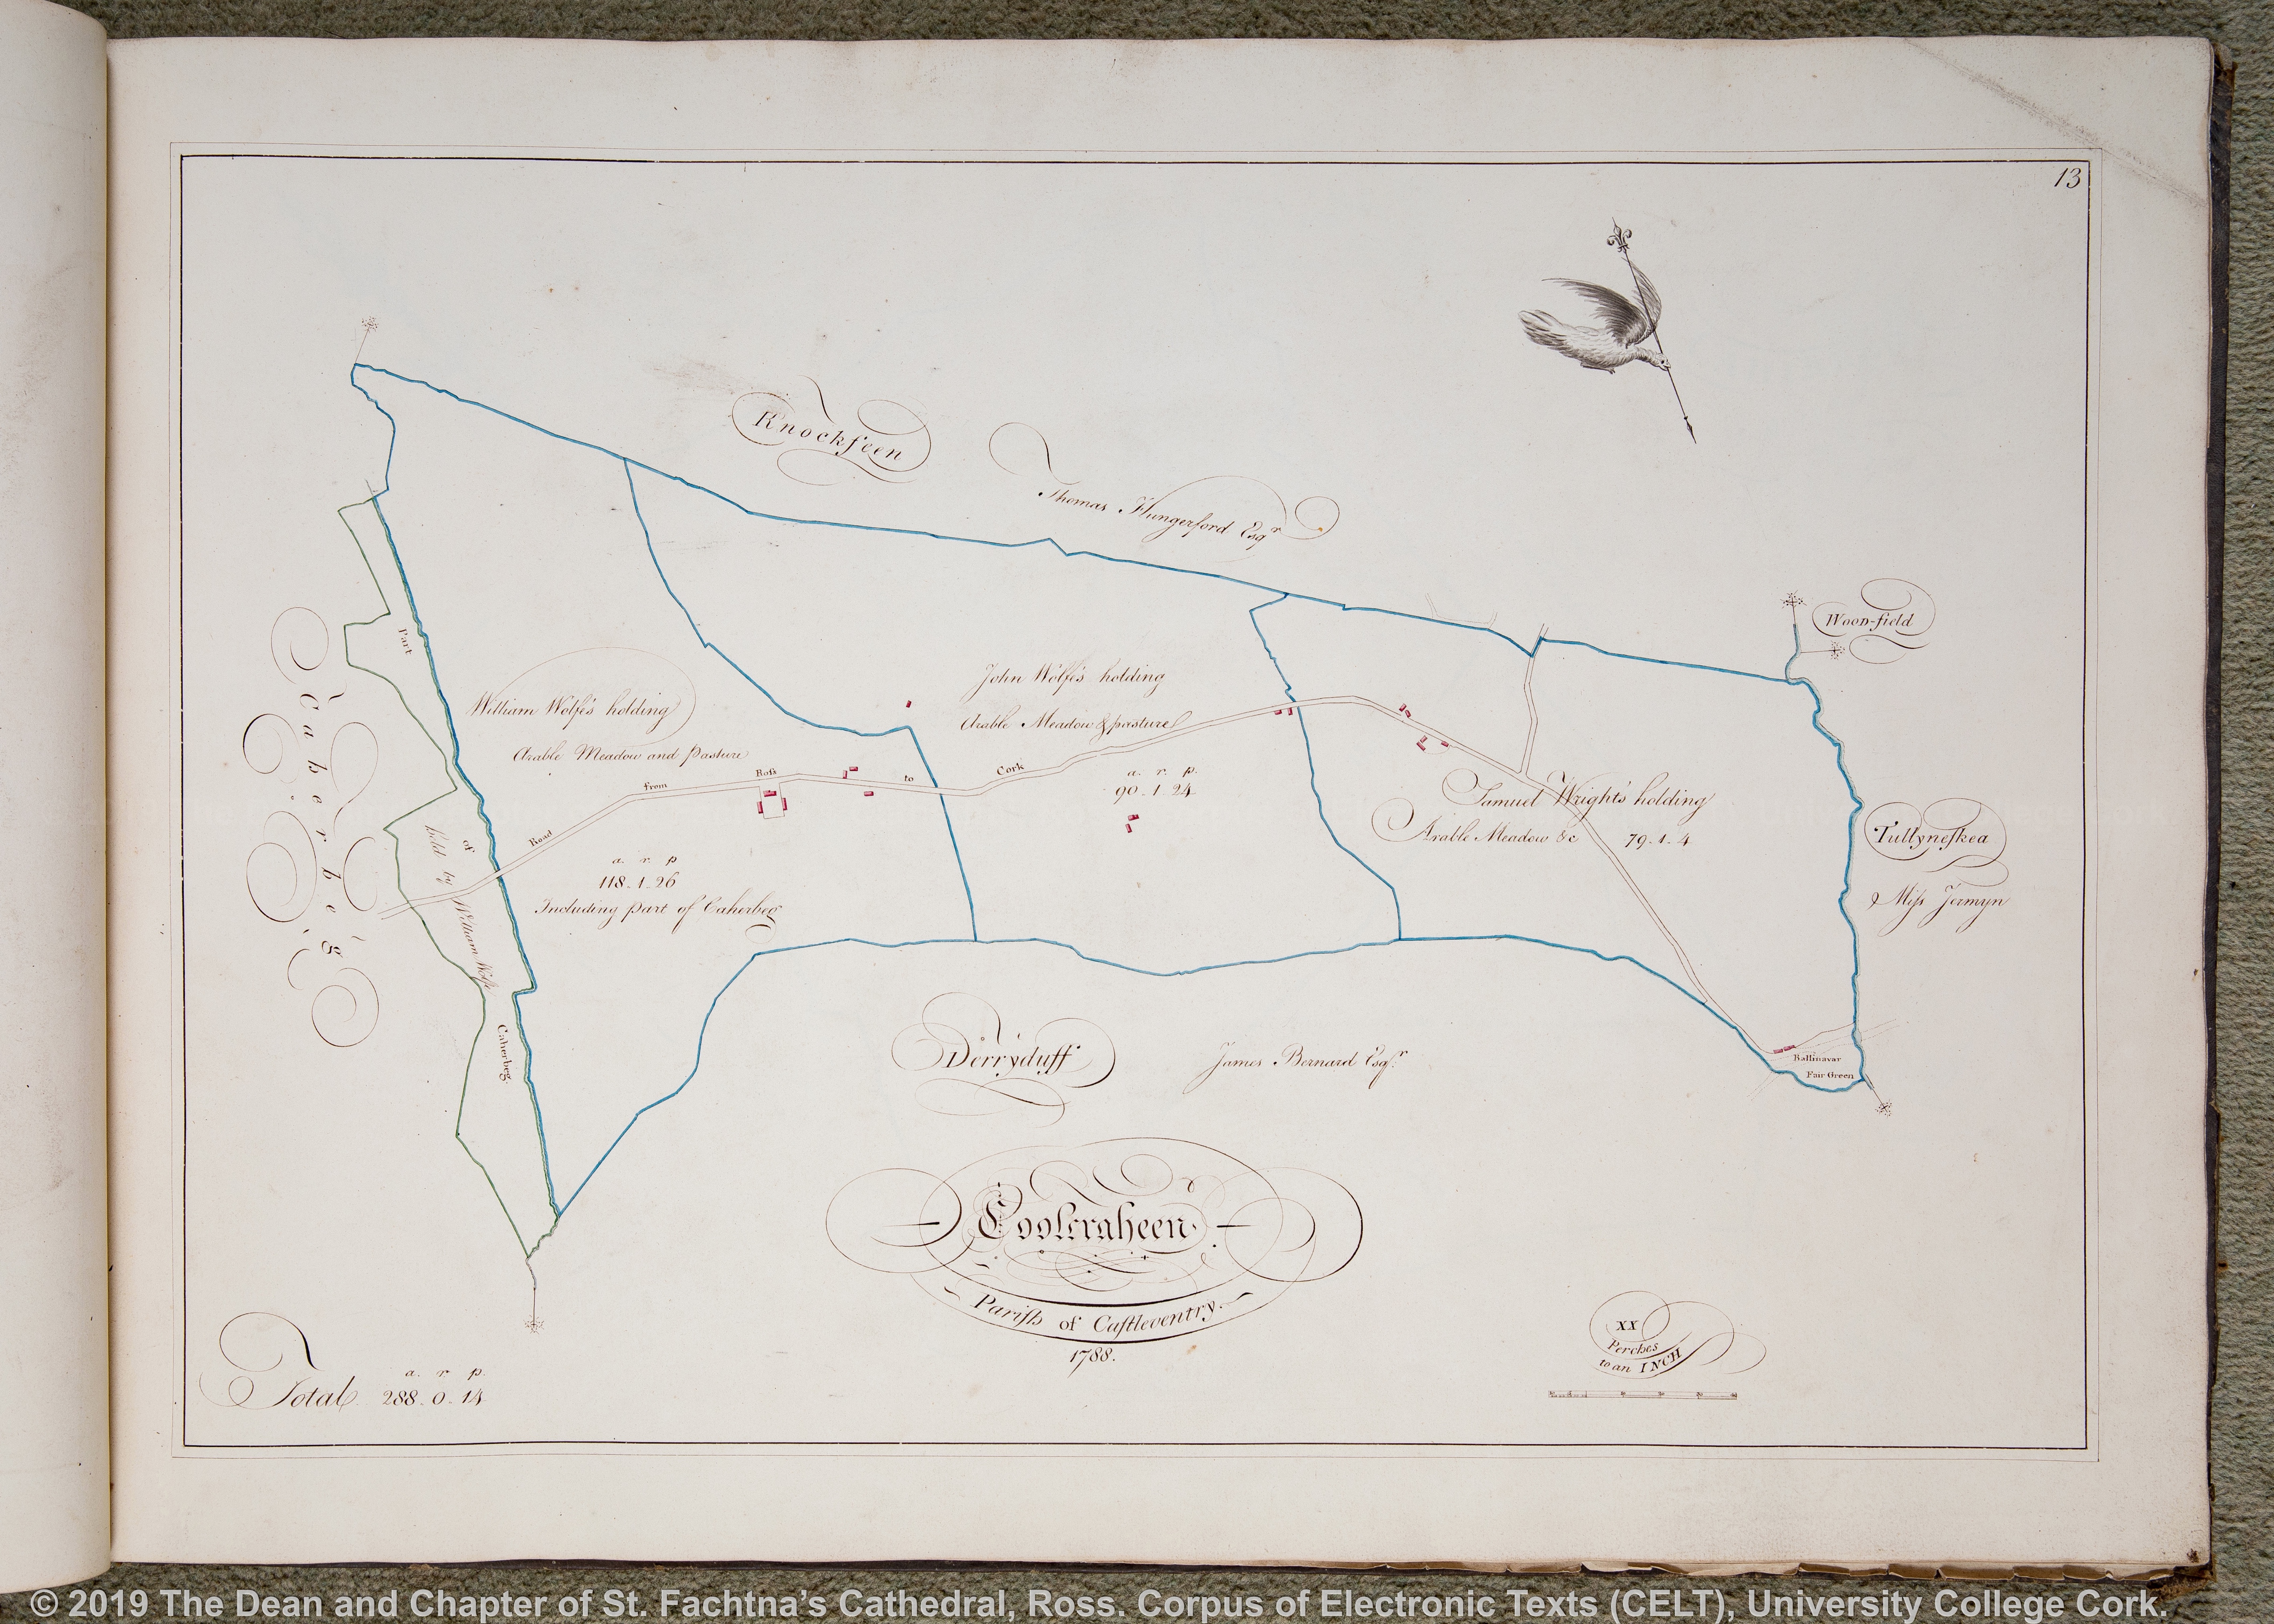 13
Knockfeen
Thomas Hungerford Esqr
Woodfield
Caherbeg
Part
of
Caherbeg
held by
William Wolfe
William Wolfe's holding
Arable Meadow and pasture
a. r. p
118-1-26
Including part of Caherbeg
John Wolfe's holding
Arable Meadow & pasture
a. r. p.
90-1-24
Road from Ross to Cork
Samuel Wright's holding
Arable Meadow &c 79-1-4
Tullyneſkea
Miſs Jermyn
Ballinavar
Fair Green
Derryduff
James Bernard Esqr.
Coolcraheen.
Pariſh of Caſtleventry.
1788.
XX
Perches
to an INCH
a. r. p.
Total 288-0-14
© 2019 The Dean and Chapter of St. Fachtna’s Cathedral, Ross. Corpus of Electronic Texts (CELT), University College Cork.